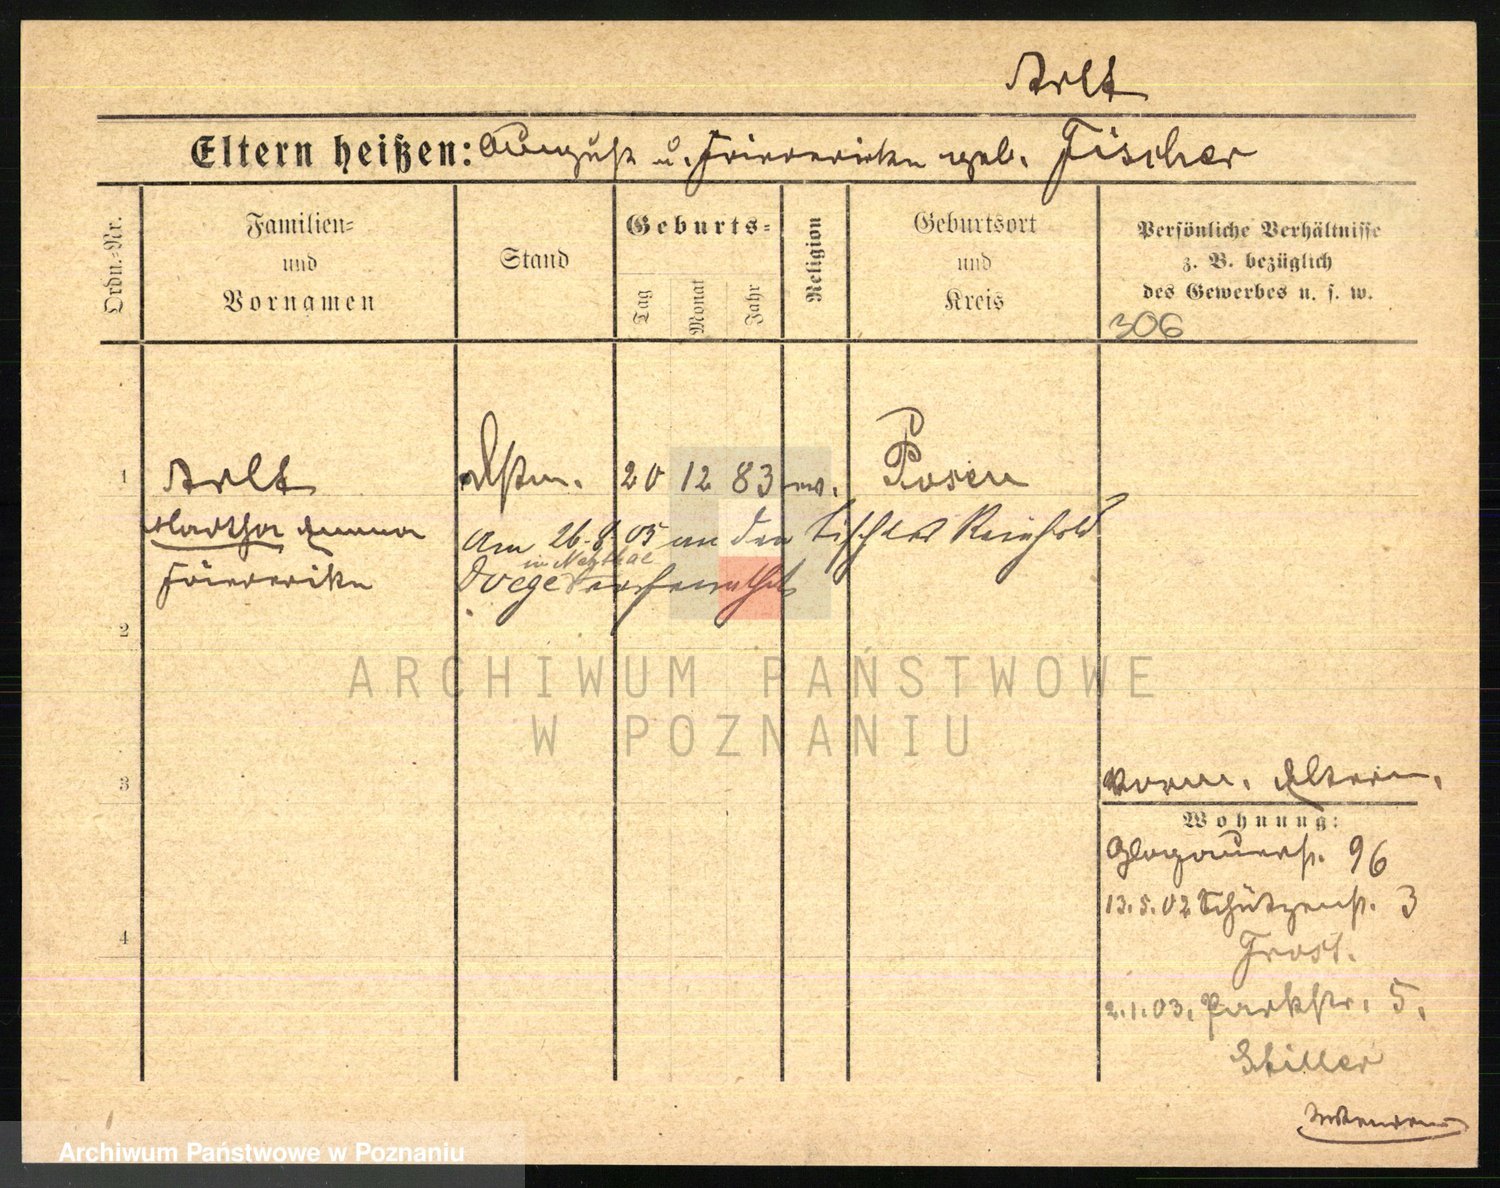 Arlt
Eltern heißen: August u. Friederike geb. Fischer
Ordn.-Nr.
Familien-
und
Vornamen
Stand
Geburts-
Tag
Monat
Jahr
Religion
Geburtsort
und
Kreis
Persönliche Verhältnisse
z. B. bezüglich
des Gewerbes u. s. w.
306
1 Arlt 20 12 83 ev. Posen
Martha Emma
Friederike
Am 26.8.05 an den Tischler Reinhold
in Netzthal
Doege verheirathet
2
ARCHIWUM PAŃSTWOWE
W POZNANIU
3
Vorm. Eltern.
Wohnung:
Glogauerstr. 96
13.5.02 Schützenstr. 3
Frost.
4
2.1.03. Parkstr. 5.
Stiller
Archiwum Państwowe w Poznaniu